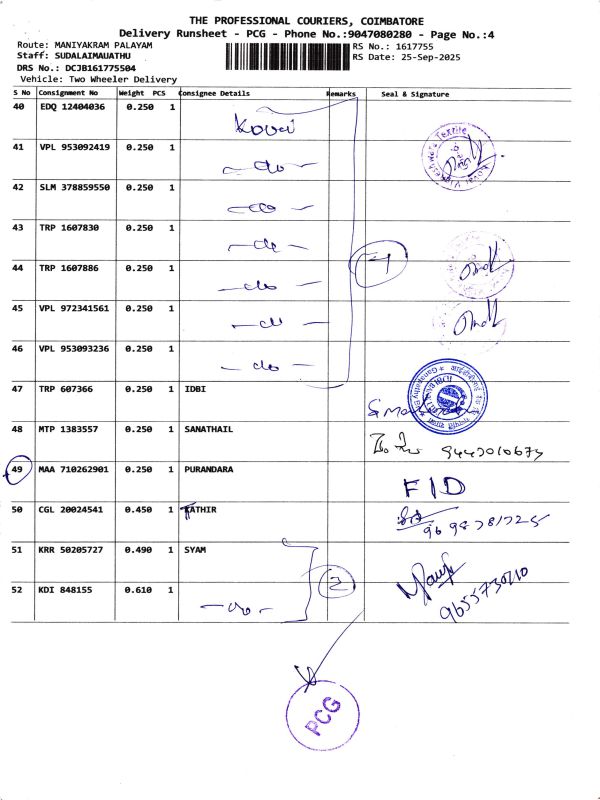 THE PROFESSIONAL COURIERS, COIMBATORE
Delivery Runsheet - PCG - Phone No.:9047080280 - Page No.:4
Route: MANIYAKRAM PALAYAM
RS No.: 1617755
Staff: SUDALAIMAUATHU
RS Date: 25-Sep-2025
DRS No.: DCJB161775504
Vehicle: Two Wheeler Delivery
S No Consignment No Weight PCS Consignee Details Remarks Seal & Signature
40 EDQ 12404036 0.250 1 Kovai
41 VPL 953092419 0.250 1 -do-
42 SLM 378859550 0.250 1 -do-
43 TRP 1607830 0.250 1 -do-
44 TRP 1607886 0.250 1 -do-
45 VPL 972341561 0.250 1 -do-
46 VPL 953093236 0.250 1 -do-
47 TRP 607366 0.250 1 IDBI
48 MTP 1383557 0.250 1 SANATHAIL
49 MAA 710262901 0.250 1 PURANDARA FID
50 CGL 20024541 0.450 1 KATHIR
51 KRR 50205727 0.490 1 SYAM
52 KDI 848155 0.610 1 -do- 2
PCG